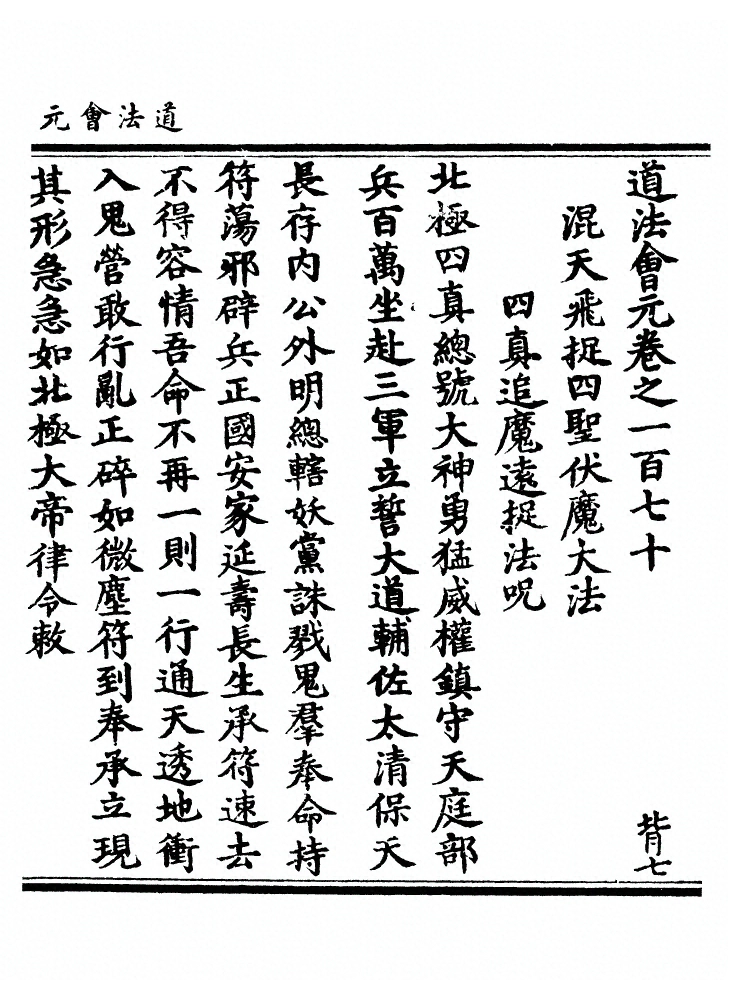 道法會元
道法會元卷之一百七十
背七
混天飛捉四聖伏魔大法
四真追魔遠捉法呪
北極四真總號大神勇猛威權鎮守天庭部
兵百萬坐赴三軍立誓大道輔佐太清保天
長存内公外明總轄妖黨誅戮鬼羣奉命持
符蕩邪辟兵正國安家延壽長生承符速去
不得容情吾命不再一則一行通天透地衝
入鬼營敢行亂正碎如微塵符到奉承立現
其形急急如北極大帝律令敕